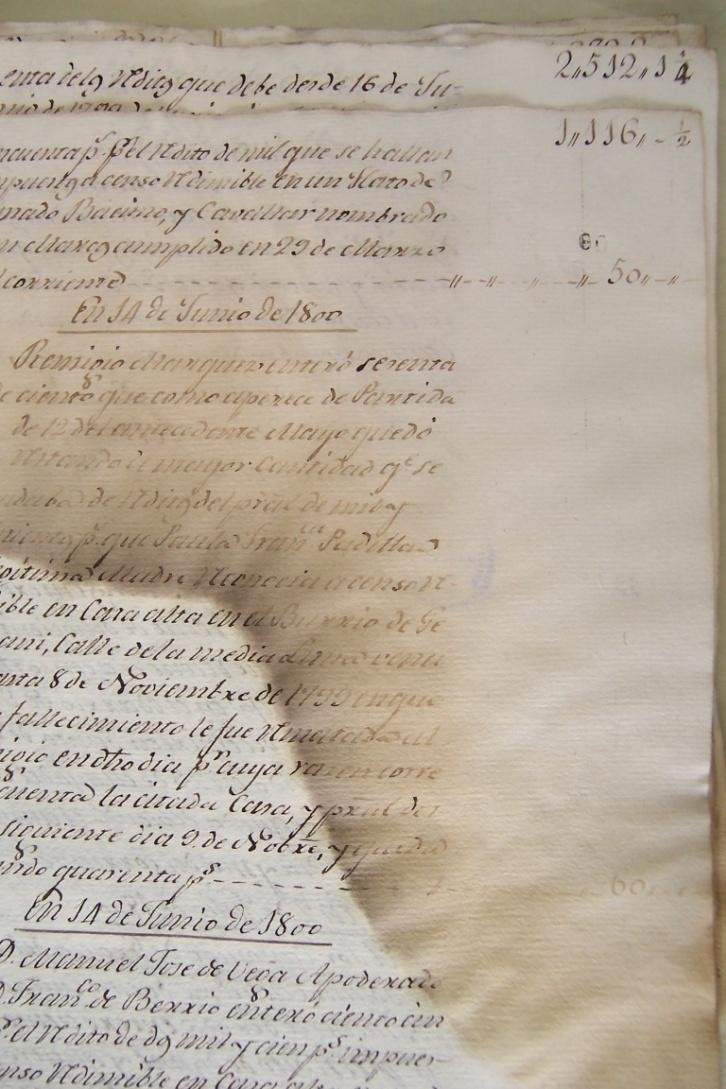 enta delos rditos que debe desde 16 de Ju- 2,,512,,1 1/4
nio de 1799
1,,116,,-1/2
ncuenta ps. pr. el rdito de mil que se hallan
censo rdimible en un Hato de
nado Bacuno, y Cavallar nombrado
n Marcos cumplido en 29 de Marzo
l corriente ---------- ,,-,,- ,, ,,- 50,,-,,
En 14 de Junio de 1800
Remigio Marquez enteró sesenta
de cientos que como aparece de Partida
de 12 del antecedente Mayo quedó
restando de mayor cantidad qe. se
de rditos del pral de mil y
ps. que Paula Franca. Padilla
gitima Madre reconocia a censo r-
ible en Casa alta en el Barrio de Ge
ani, Calle de la media Luna
8 de Noviembre de 1799 en que
fallecimiento le fue al
igio en dho dia pr. cuya razon corre
cuenta la citada Casa, y pral del
siguiente dia 9 de Nobre, y queda
ndo quarenta ps. ---------- 60
En 14 de Junio de 1800
D. Manuel Jose de Vega Apoderado
D. Franco. de Berrio enteró ciento cin
pr. el rdito de dos mil y cien ps. impues-
enso rdimible en Casa alta